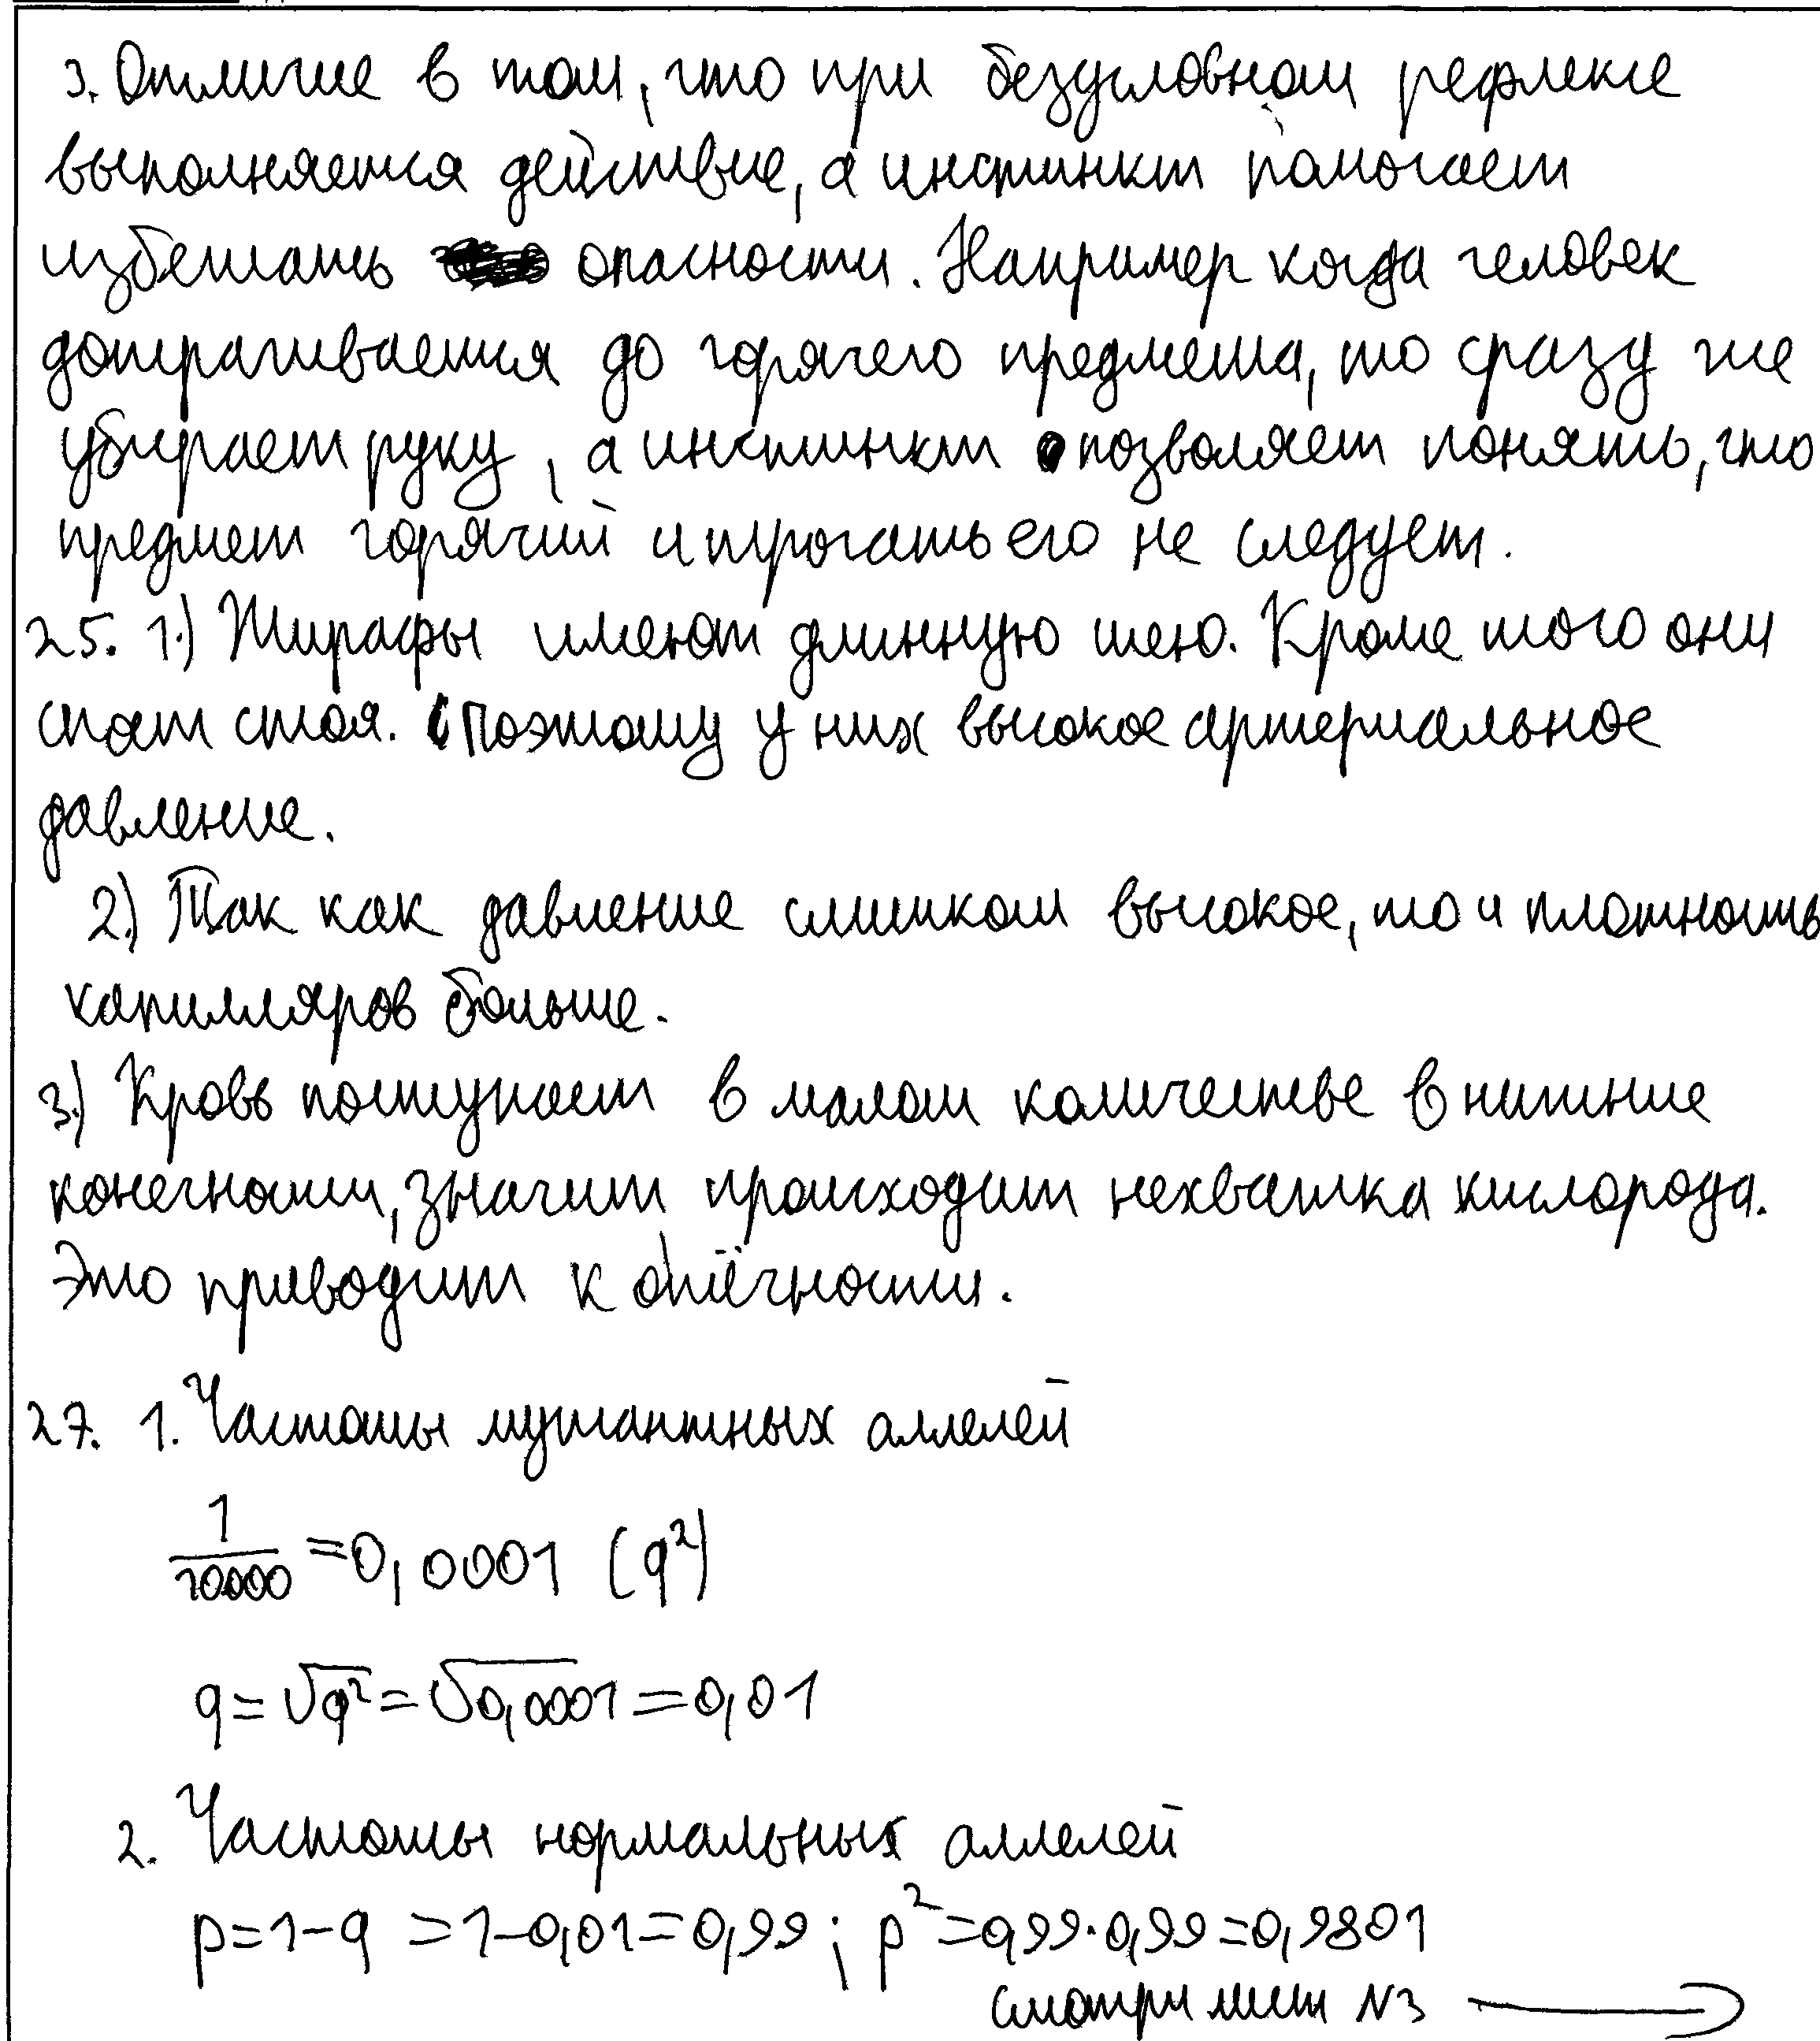 3. Отличие в том, что при безусловном рефлексе
выполняется действие, а инстинкт помогает
избежать опасности. Например когда человек
дотрагивается до горячего предмета, то сразу же
убирает руку, а инстинкт позволяет понять, что
предмет горячий и трогать его не следует.
25. 1.) Жирафы имеют длинную шею. Кроме того они
спят стоя. Поэтому у них высокое артериальное
давление.
2.) Так как давление слишком высокое, то и плотность
капилляров больше.
3.) Кровь поступает в малом количестве в нижние
конечности, значит происходит нехватка кислорода.
Это приводит к отёчности.
27. 1. Частоты мутантных аллелей
1/10000 = 0,0001 (q²)
q = √q² = √0,0001 = 0,01
2. Частоты нормальных аллелей
p = 1 - q = 1 - 0,01 = 0,99; p² = 0,99 · 0,99 = 0,9801
смотри лист №3